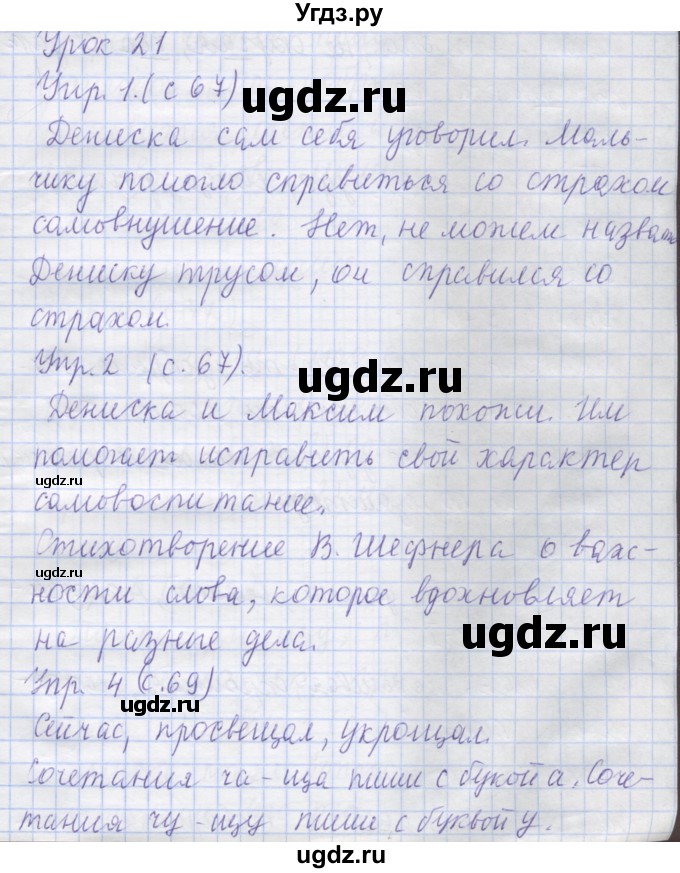 Угдз.ру
Урок 21
Упр. 1.(с 67)
ugdz.ru
Дениска сам себя уговорил. Маль-
чику помогло справиться со страхом
самовнушение. Нет, не можем назвать
Дениску трусом, он справился со
страхом.
ugdz.ru
Упр. 2 (с. 67).
Дениска и Максим похожи. Им
помогает исправить свой характер
ugdz.ru
самовоспитание.
Стихотворение В. Шефнера о важ-
ugdz.ru
ности слова, которое вдохновляет
ugdz.ru
на разные дела.
Упр. 4 (с.69)
ugdz.ru
Сейчас, просвещал, укрощал.
Сочетания ча-ща пиши с букой а. Соче-
тания чу-щу пиши с буквой у.
ugdz.ru